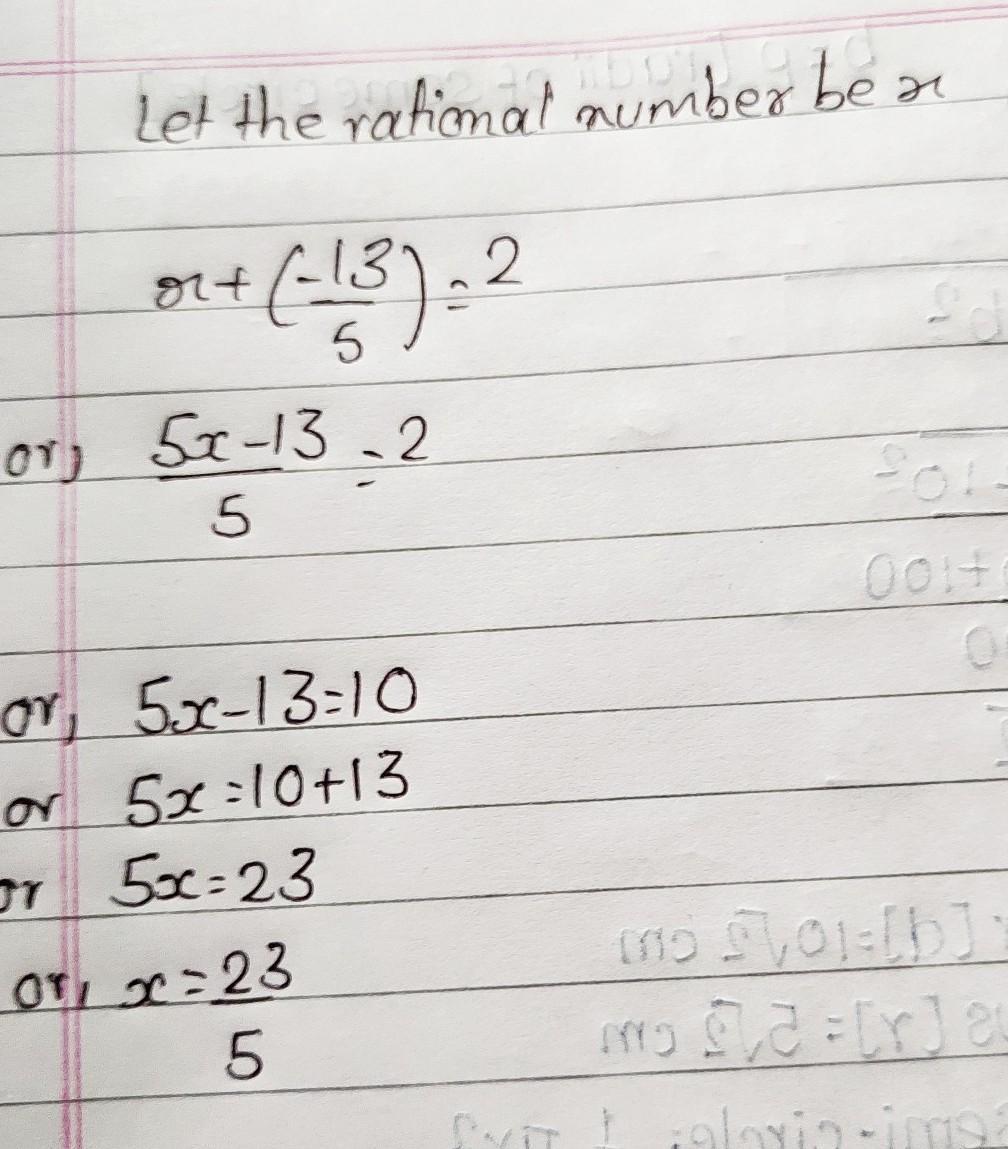 Let the rational number be x
x + (-13/5) = 2
or, 5x-13/5 = 2
or, 5x-13=10
or 5x=10+13
or 5x=23
or, x=23/5